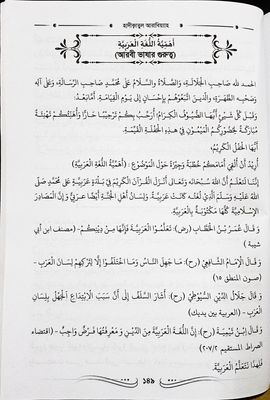 হাদীক্বাতুল আরাবিয়্যাহ
أَهَمِّيَّةُ اللُّغَةِ الْعَرَبِيَّةِ
(আরবী ভাষার গুরুত্ব)
الْحَمْدُ لِلَّهِ صَاحِبِ الْجَلَالَةِ، وَالصَّلَاةُ وَالسَّلَامُ عَلَى مُحَمَّدٍ صَاحِبِ الرِّسَالَةِ، وَعَلَى آلِهِ
وَصَحْبِهِ الطَّهَرَةِ، وَالَّذِينَ اتَّبَعُوهُمْ بِإِحْسَانٍ إِلَى يَوْمِ الْقِيَامَةِ. أَمَّا بَعْدُ:
وَقَبْلَ كُلِّ شَيْءٍ أَيُّهَا الضُّيُوفُ الْكِرَامُ! أُرَحِّبُ بِكُمْ تَرْحِيبًا حَارًّا وَأُهَنِّئُكُمْ تَهْنِئَةً
مُبَارَكَةً لِحُضُورِكُمُ الْمَيْمُونِ فِي هَذِهِ الْحَفْلَةِ الْقَيِّمَةِ.
أَيُّهَا الْحَفْلُ الْكَرِيمُ،
أُرِيدُ أَنْ أُلْقِيَ أَمَامَكُمْ خُطْبَةً وَجِيزَةً حَوْلَ الْمَوْضُوعِ : (أَهَمِّيَّةُ اللُّغَةِ الْعَرَبِيَّةِ)
إِنَّنَا لَنَعْلَمُ أَنَّ اللَّهَ سُبْحَانَهُ وَتَعَالَى أَنْزَلَ الْقُرْآنَ الْكَرِيمَ فِي بَلْدَةٍ عَرَبِيَّةٍ عَلَى مُحَمَّدٍ صَلَّى
اللَّهُ عَلَيْهِ وَسَلَّمَ الَّذِي لُغَتُهُ كَانَتْ عَرَبِيَّةً. وَلِسَانُ أَهْلِ الْجَنَّةِ أَيْضًا عَرَبِيٌّ وَإِنَّ الْمَصَادِرَ
الْإِسْلَامِيَّةَ كُلَّهَا مَكْتُوبَةٌ بِالْعَرَبِيَّةِ.
وَ قَالَ عُمَرُ بْنُ الْخَطَّابِ (رض): تَعَلَّمُوا الْعَرَبِيَّةَ فَإِنَّهَا مِنْ دِينِكُمْ- (مصنف ابن أبي
شيبة)
وَ قَالَ الْإِمَامُ الشَّافِعِيُّ (رح): مَا جَهِلَ النَّاسُ وَمَا اخْتَلَفُوا إِلَّا لِتَرْكِهِمْ لِسَانَ الْعَرَبِ -
(صون المنطق ١٥)
وَ قَالَ جَلَالُ الدِّيْنِ السُّيُوْطِيُّ (رح): أَشَارَ السَّلَفُ إِلَى أَنَّ سَبَبَ الِابْتِدَاعِ الْجَهْلُ بِلِسَانِ
الْعَرَبِ - (العربية بين يديك)
وَ قَالَ ابْنُ تَيْمِيَّةَ (رح): إِنَّ اللُّغَةَ الْعَرَبِيَّةَ مِنَ الدِّيْنِ وَ مَعْرِفَتُهَا فَرْضٌ وَاجِبٌ - (اقتضاء
الصراط المستقيم ٢٠٧/٢)
فَلِهَذَا نَتَعَلَّمُ الْعَرَبِيَّةَ.
১৪৯